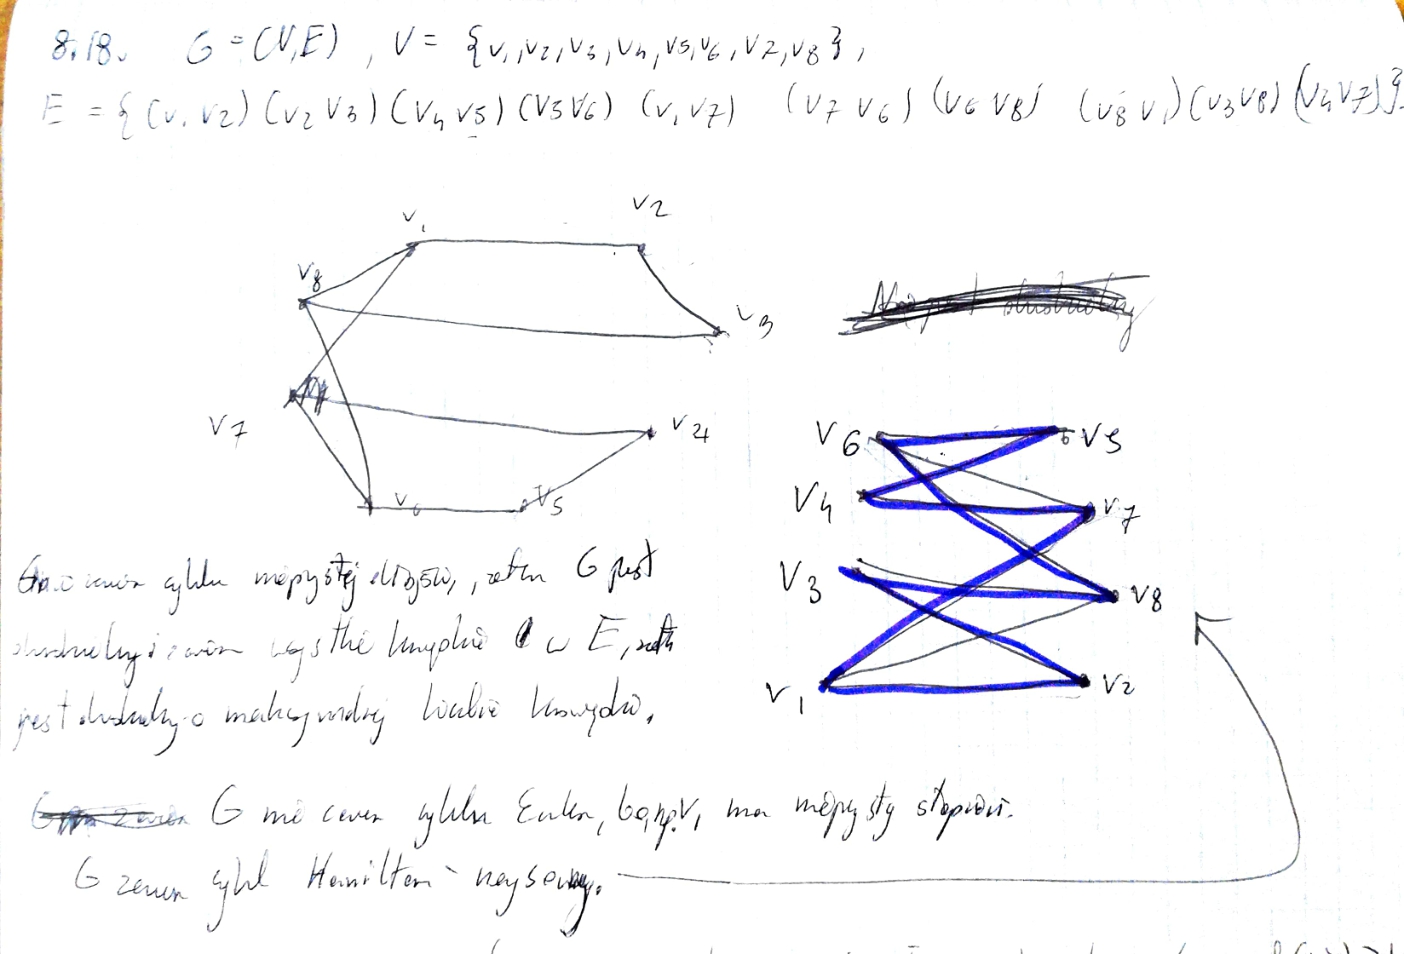 8.18. G = (V,E) , V = {v1, v2, v3, v4, v5, v6, v7, v8},
E = {(v1 v2) (v2 v3) (v4 v5) (v5 v6) (v1 v7) (v7 v6) (v6 v8) (v8 v1) (v3 v8) (v4 v7)}
v1
v2
v8
v3
v7
v4
v6
v5
v6
v5
v4
v7
v3
v8
v1
v2
G nie zawiera cyklu nieparzystej długości, zatem G jest
dwudzielny i zawiera wszystkie krawędzie w E, zatem
jest dwudzielny o maksymalnej liczbie krawędzi.
G nie zawiera cyklu Eulera, bo np. v1 ma nieparzysty stopień.
G zawiera cykl Hamiltona - narysowany.